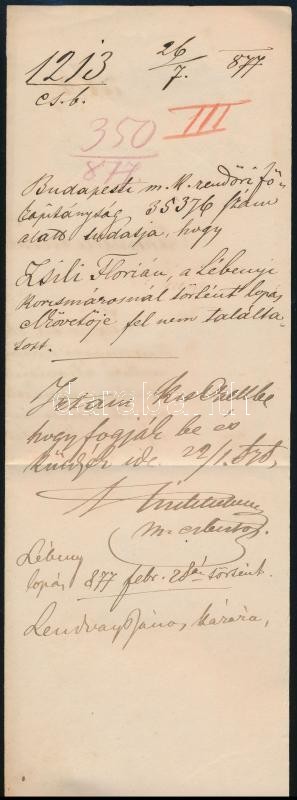 1213 26/7. 877
cs. b.
350/877 III
Budapesti m. k. rendőri fő-
kapitányság 35376 szám
alatt tudatja, hogy
Zsili Florián, a Lébenyi
korcsmárosnál történt lopás
elkövetője fel nem találta-
tott.
hogy fogják be és
küldjék ide. 22/1
Lébeny
lopás 877 febr. 28án történt.
Lendvay János kárára,